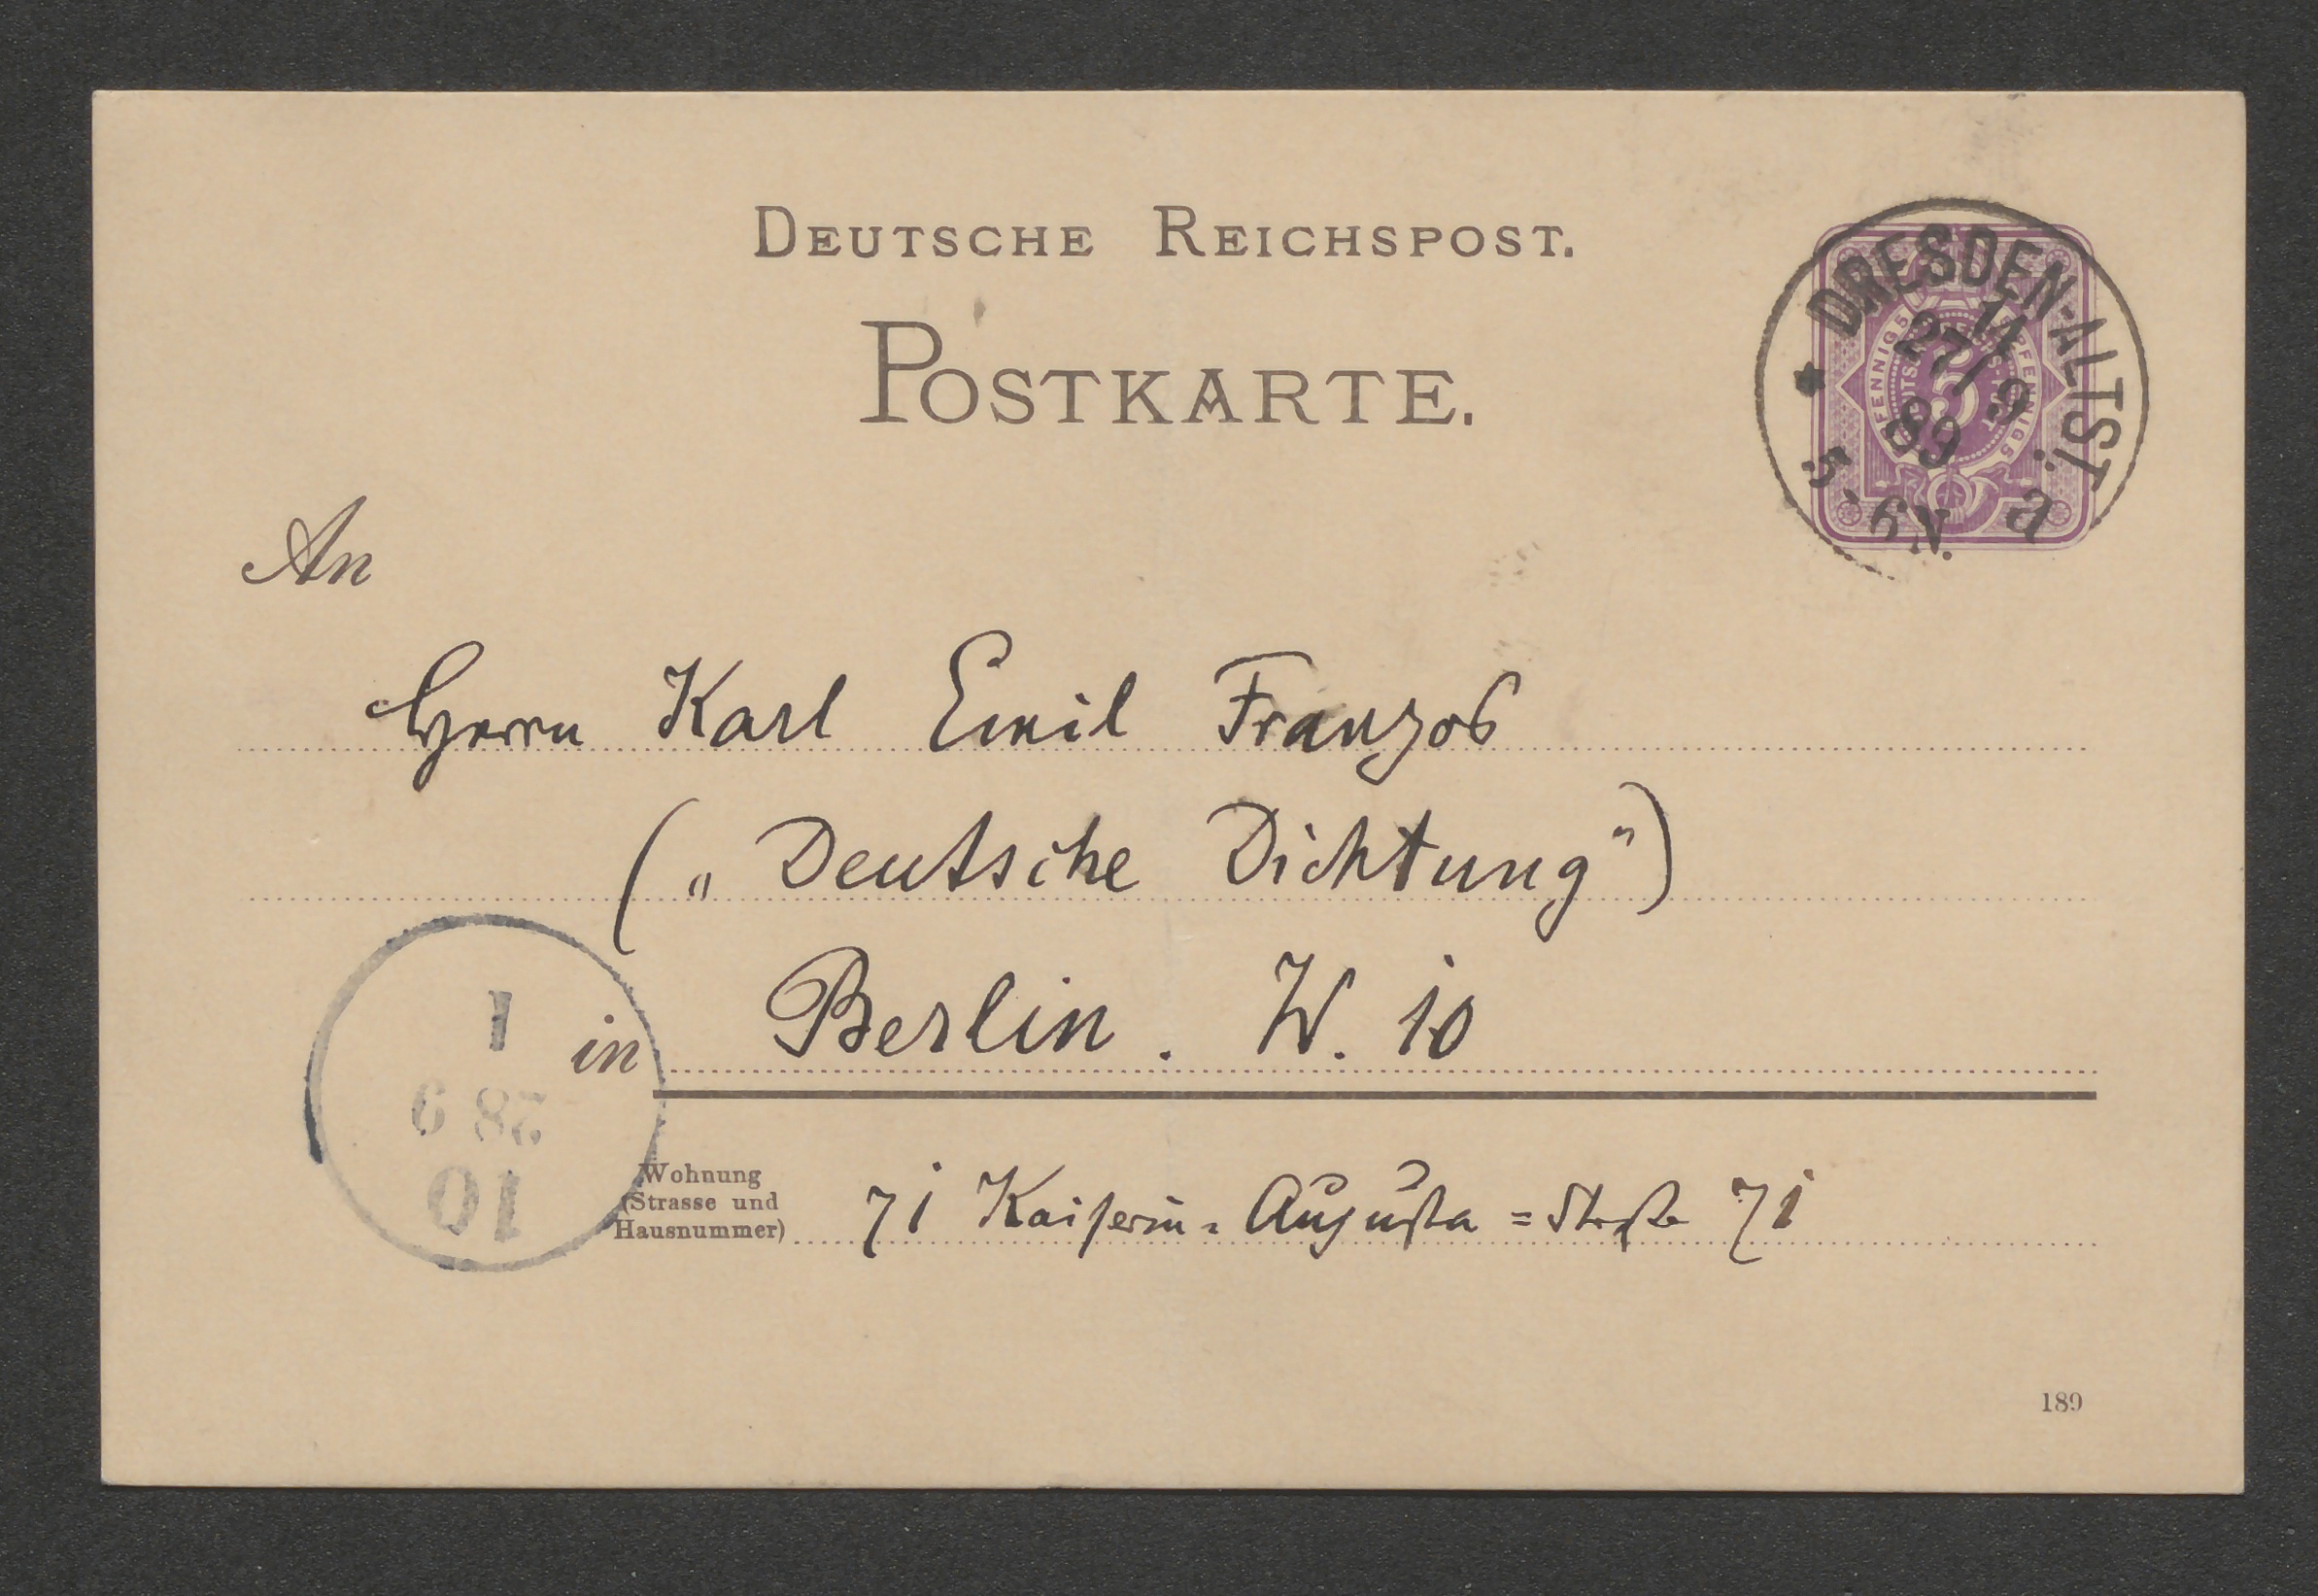 DEUTSCHE REICHSPOST.
POSTKARTE.
DRESDEN-ALTST.
11
27/9
89
5-6N. a
An
Herrn Karl Emil Franzos
(„Deutsche Dichtung“)
in Berlin. W. 10
1
28 9
10
Wohnung
(Strasse und
Hausnummer)
71 Kaiserin=Augusta=Straße 71
189